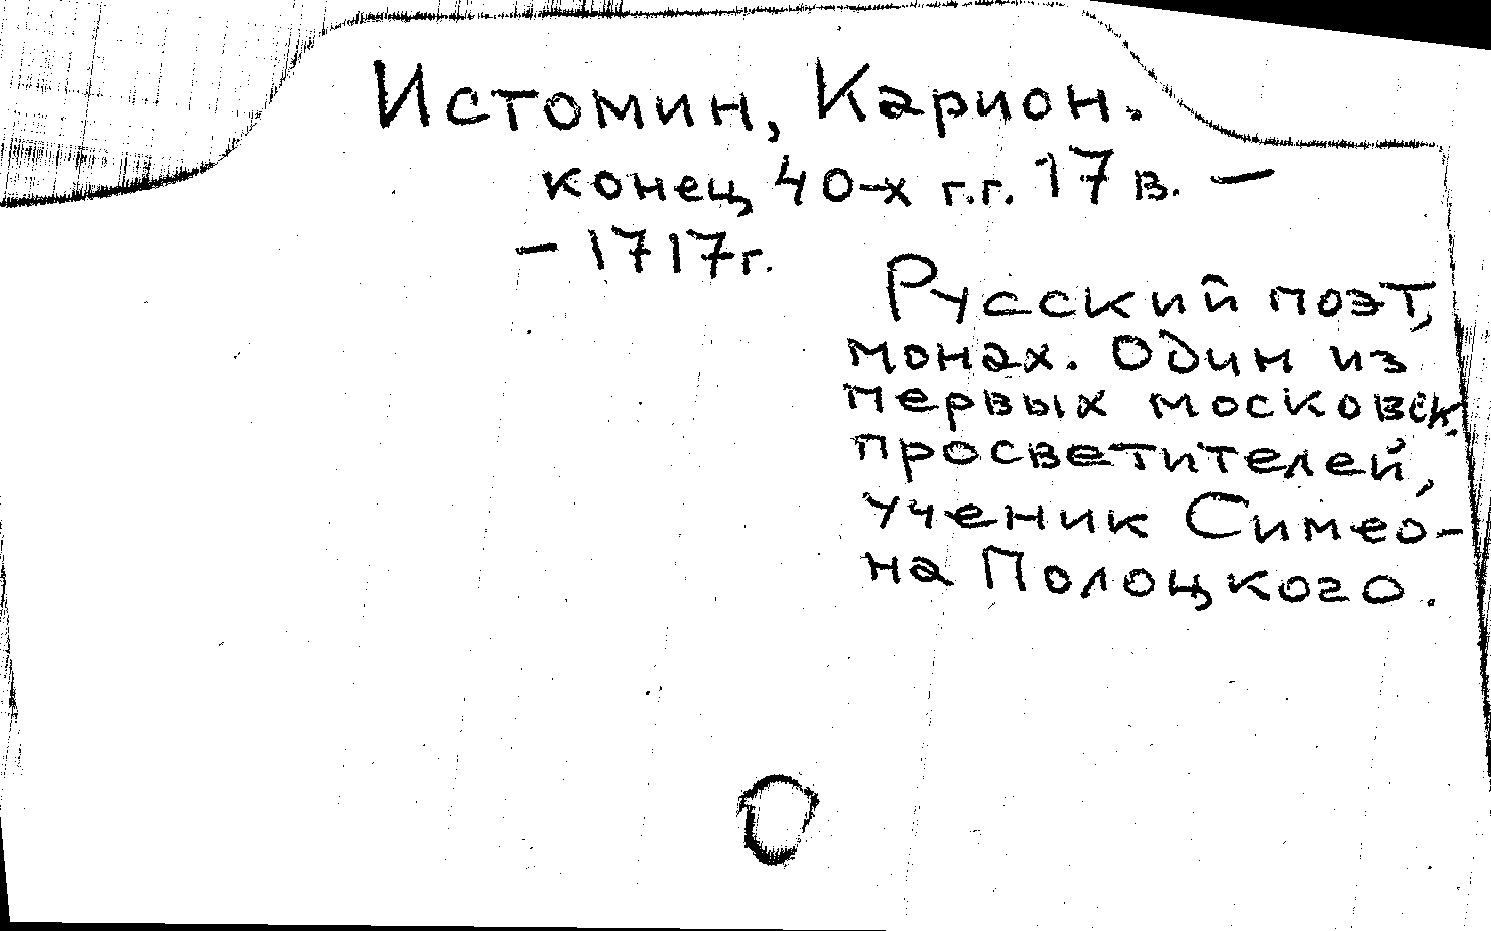 Истомин, Карион.
конец 40-х г.г. 17 в. —
— 1717г.
Русский поэт,
монах. Один из
первых московск.
просветителей,
ученик Симео-
на Полоцкого.